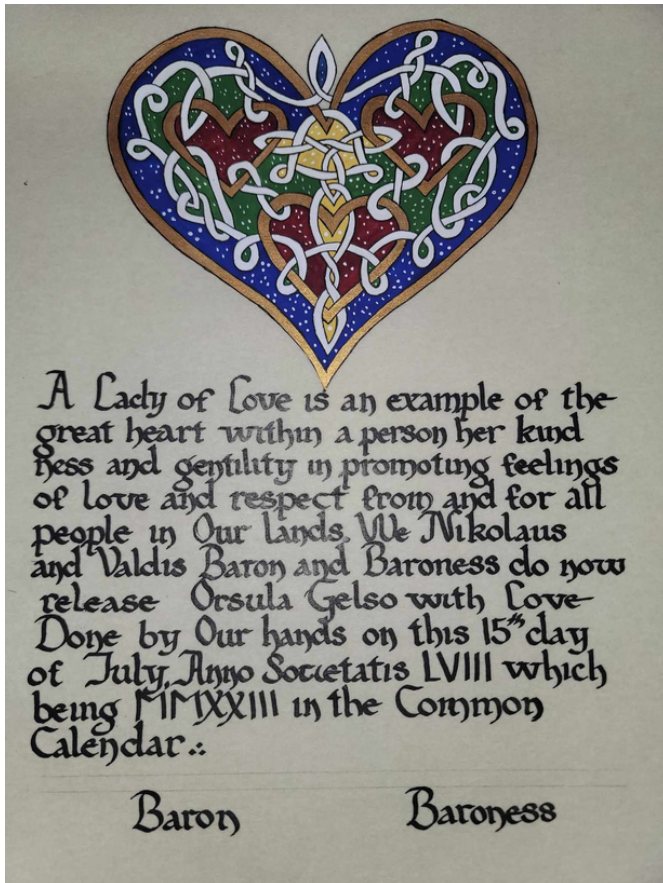 A Lady of Love is an example of the
great heart within a person her kind
ness and gentility in promoting feelings
of love and respect from and for all
people in Our lands. We Nikolaus
and Valdis Baron and Baroness do now
release Orsula Gelso with Love
Done by Our hands on this 15th day
of July, Anno Societatis LVIII which
being MMXXIII in the Common
Calendar.:
Baron Baroness